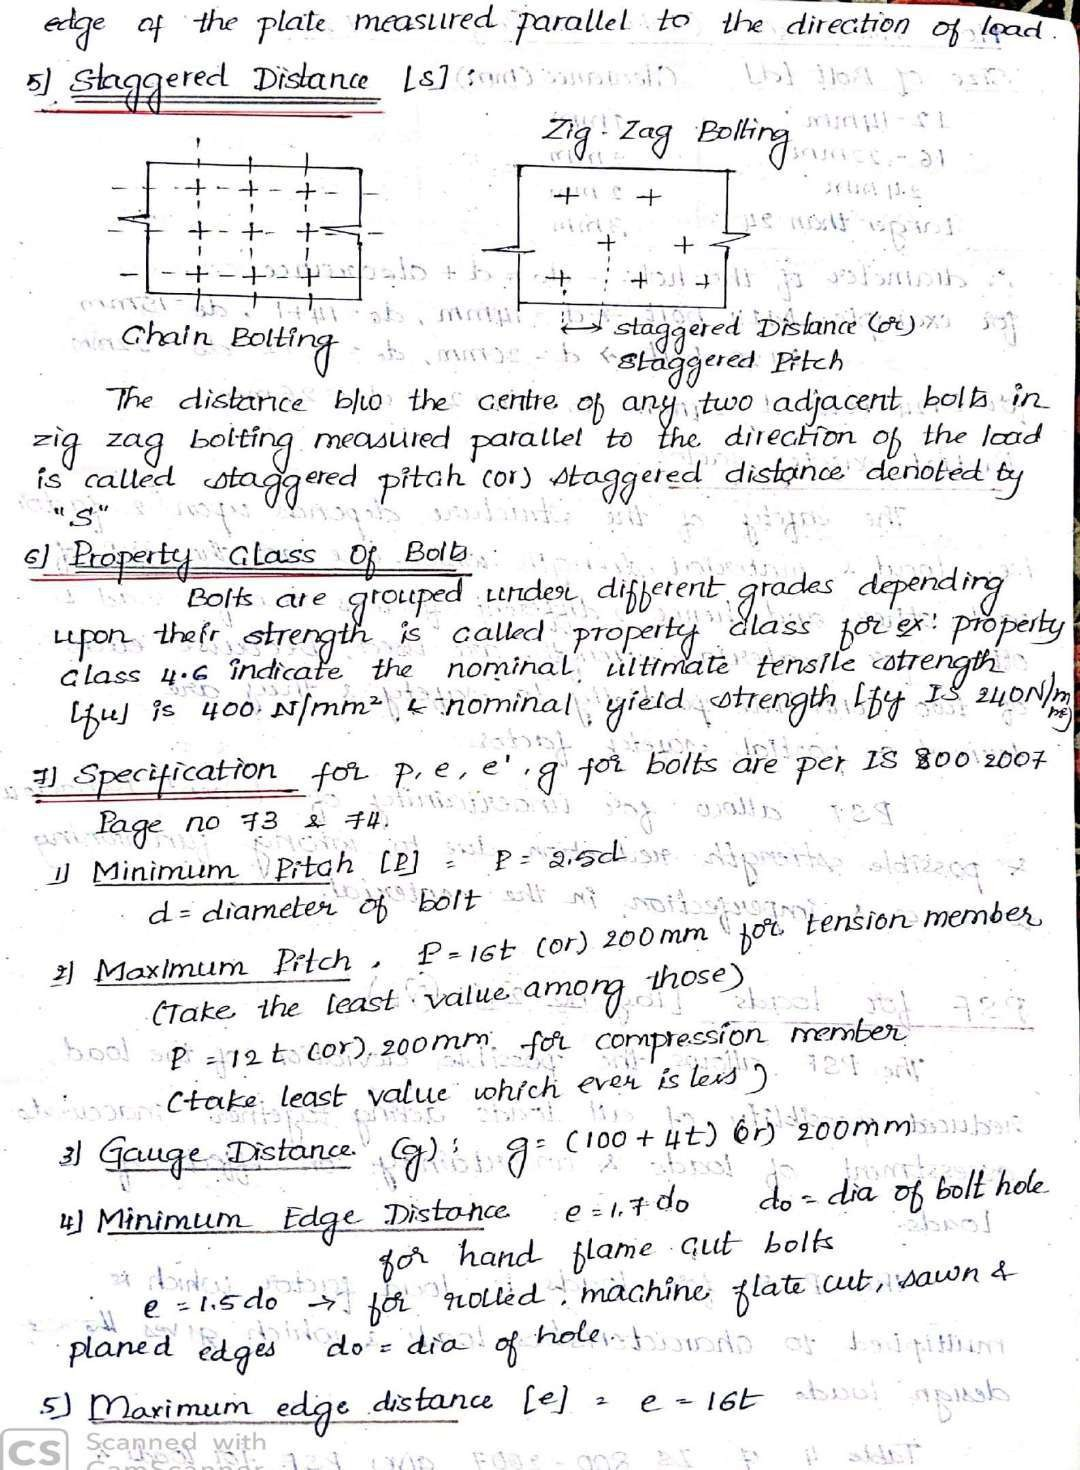 edge of the plate measured parallel to the direction of load.
5) Staggered Distance [S]:
Zig-Zag Bolting
Chain Bolting
staggered Distance (or)
Staggered Pitch
The distance b/w the centre of any two adjacent bolts in
zig zag bolting measured parallel to the direction of the load
is called staggered pitch (or) staggered distance denoted by
"S"
6) Property Class Of Bolts
Bolts are grouped under different grades depending
upon their strength is called property class for ex: property
class 4.6 indicate the nominal ultimate tensile strength
[fu] is 400 N/mm² & nominal yield strength [fy IS 240N/m
7) Specification for p, e, e', g for bolts are per IS 800 2007
Page no 73 & 74.
1) Minimum Pitch [P] = P = 2.5d
d = diameter of bolt
2) Maximum Pitch, P = 16t (or) 200mm for tension member
(Take the least value among those)
P = 12t (or) 200mm for compression member
(take least value which ever is less)
3) Gauge Distance (g): g = (100 + 4t) (or) 200mm
4) Minimum Edge Distance e = 1.7 do do = dia of bolt hole
for hand flame cut bolts
e = 1.5 do → for rolled, machine flate cut, sawn &
planed edges do = dia of hole.
5) Maximum edge distance [e] = e = 16t
CS Scanned with
CamScanner